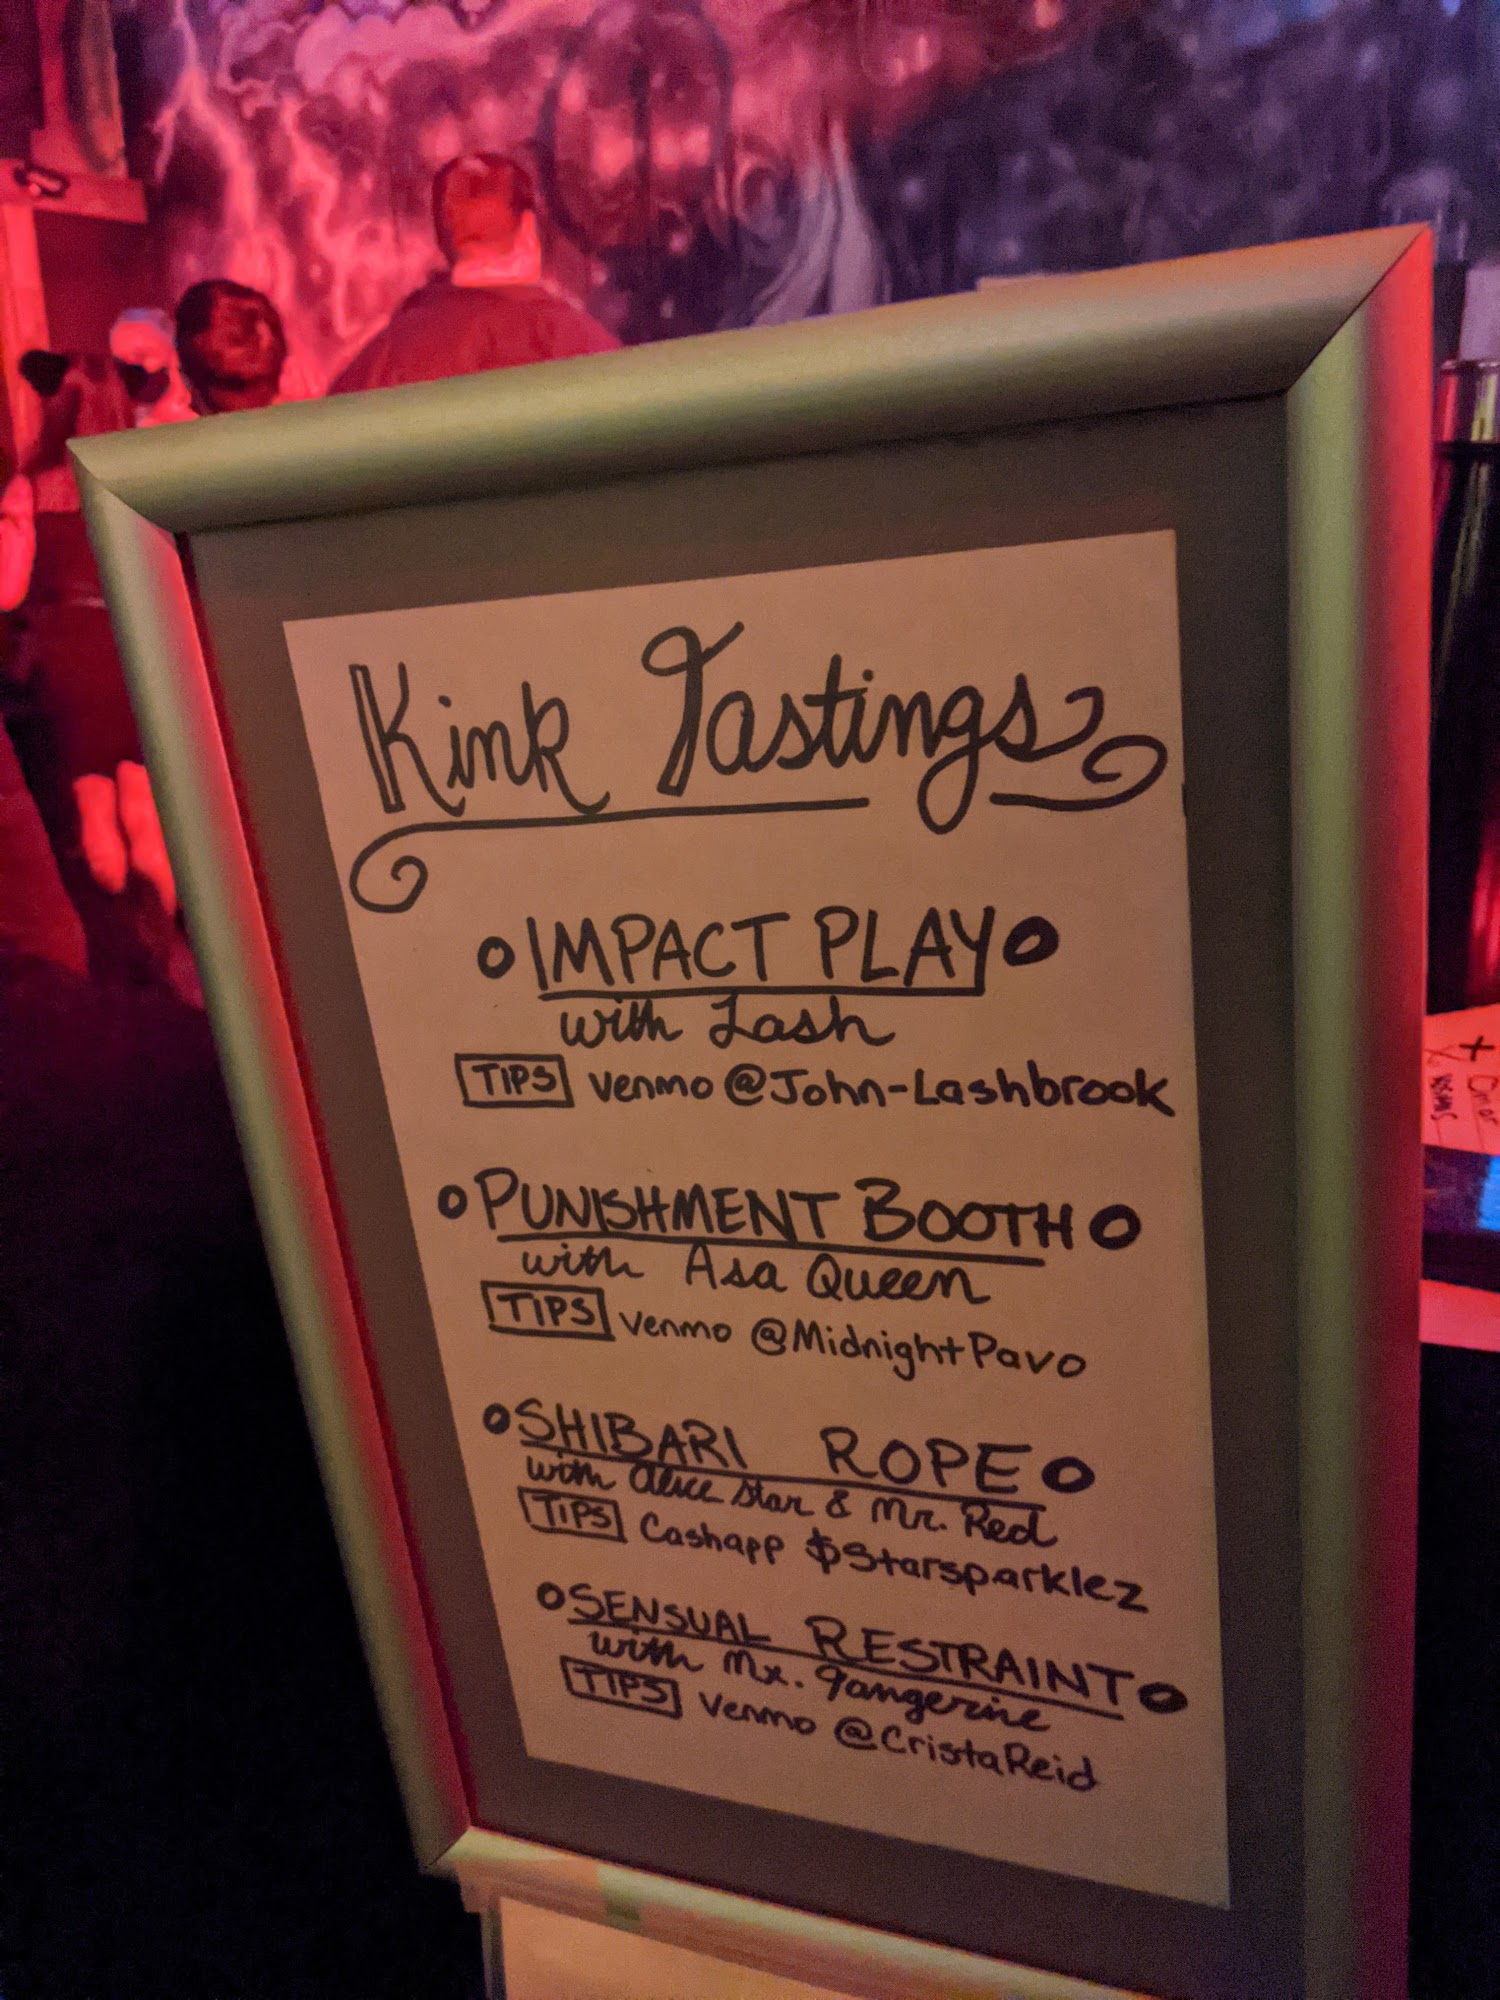 Kink Tastings
IMPACT PLAY
with Lash
TIPS Venmo @John-Lashbrook
PUNISHMENT BOOTH
with Asa Queen
TIPS Venmo @MidnightPavo
SHIBARI ROPE
with Alice Star & Mr. Red
TIPS Cashapp $Starsparklez
SENSUAL RESTRAINT
with Mx. Tangerine
TIPS Venmo @CristaReid